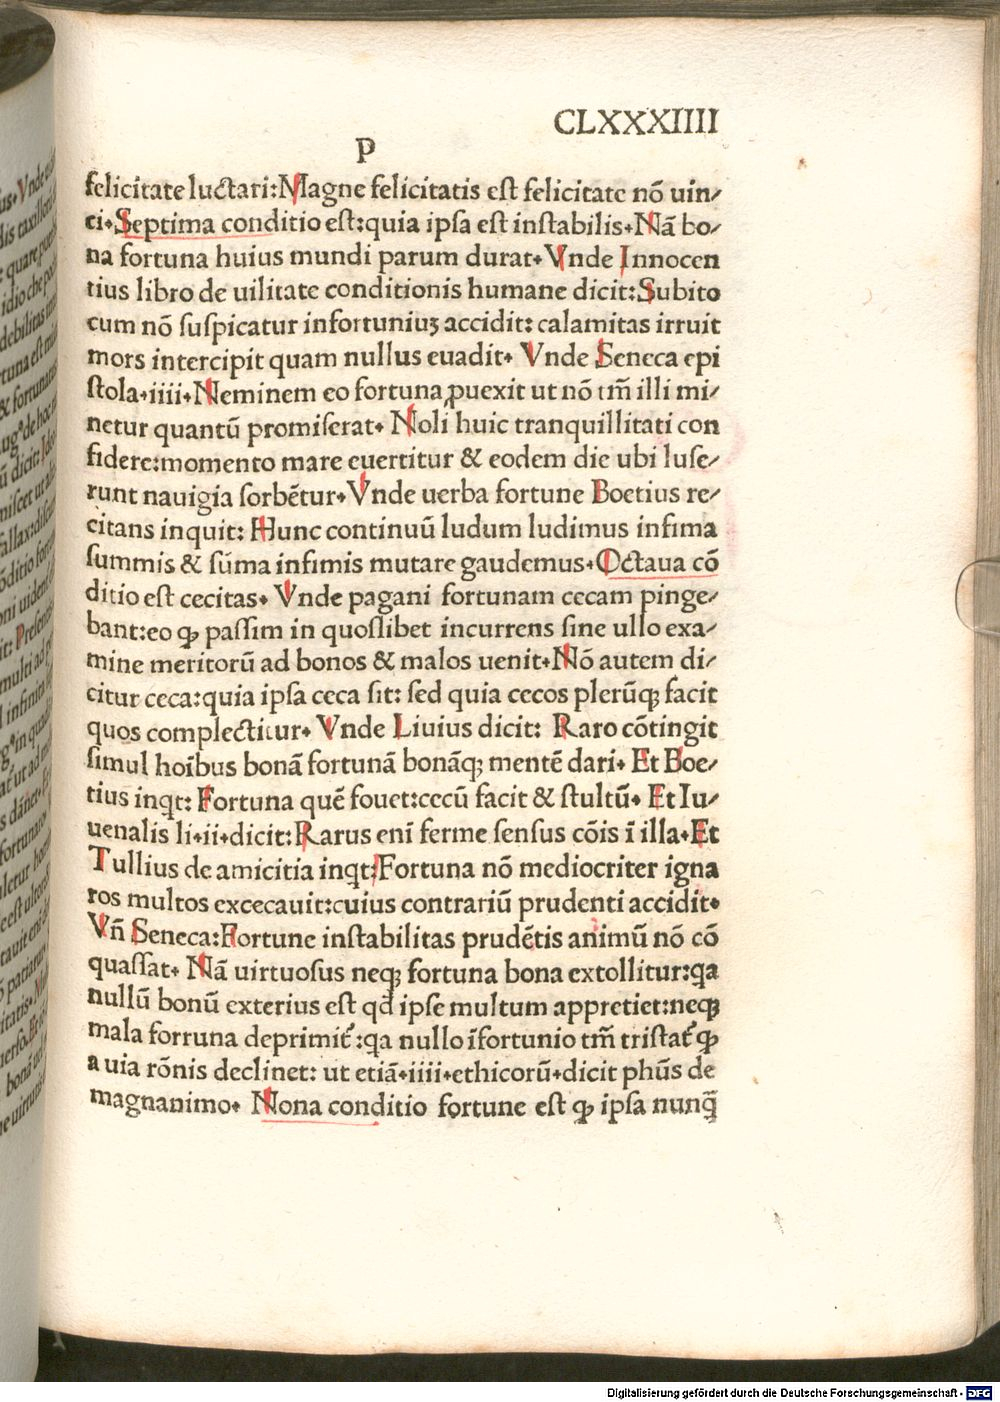 CLXXXIIII
P
felicitate luctari:Magne felicitatis est felicitate nō uin/
ci.Septima conditio est:quia ipsa est instabilis.Nā bo/
na fortuna huius mundi parum durat. Vnde Innocen
tius libro de uilitate conditionis humane dicit:Subito
cum nō suspicatur infortuniuꝫ accidit: calamitas irruit
mors intercipit quam nullus euadit. Vnde Seneca epi
stola.iiii.Neminem eo fortuna ꝓuexit ut nō tm̄ illi mi/
netur quantū promiserat. Noli huic tranquillitati con
fidere:momento mare euertitur & eodem die ubi luse/
runt nauigia sorbētur.Vnde uerba fortune Boetius re/
citans inquit: Hunc continuū ludum ludimus infima
summis & sūma infimis mutare gaudemus.Octaua cō
ditio est cecitas. Vnde pagani fortunam cecam pinge/
bant:eo ꝙ passim in quoslibet incurrens sine ullo exa/
mine meritorū ad bonos & malos uenit.Nō autem di/
citur ceca:quia ipsa ceca sit: sed quia cecos plerūqꝫ facit
quos complectitur. Vnde Liuius dicit: Raro cōtingit
simul hoībus bonā fortunā bonāqꝫ mentē dari. Et Boe/
tius inqt: Fortuna quē fouet:cecū facit & stultū. Et Iu/
uenalis li.ii.dicit:Rarus enī ferme sensus cōis ī illa.Et
Tullius de amicitia inqt:Fortuna nō mediocriter igna
ros multos excecauit:cuius contrariū prudenti accidit.
Vn̄ Seneca:Fortune instabilitas prudētis animū nō cō
quassat. Nā uirtuosus neqꝫ fortuna bona extollitur:qa
nullū bonū exterius est qd ipse multum appretiet:neqꝫ
mala forruna deprimit᷑:qa nullo īfortunio tm̄ tristat᷑ ꝙ
a uia rōnis declinet: ut etiā.iiii.ethicorū.dicit phūs de
magnanimo. Nona conditio fortune est ꝙ ipsa nunq̄
Digitalisierung gefördert durch die Deutsche Forschungsgemeinschaft - DFG